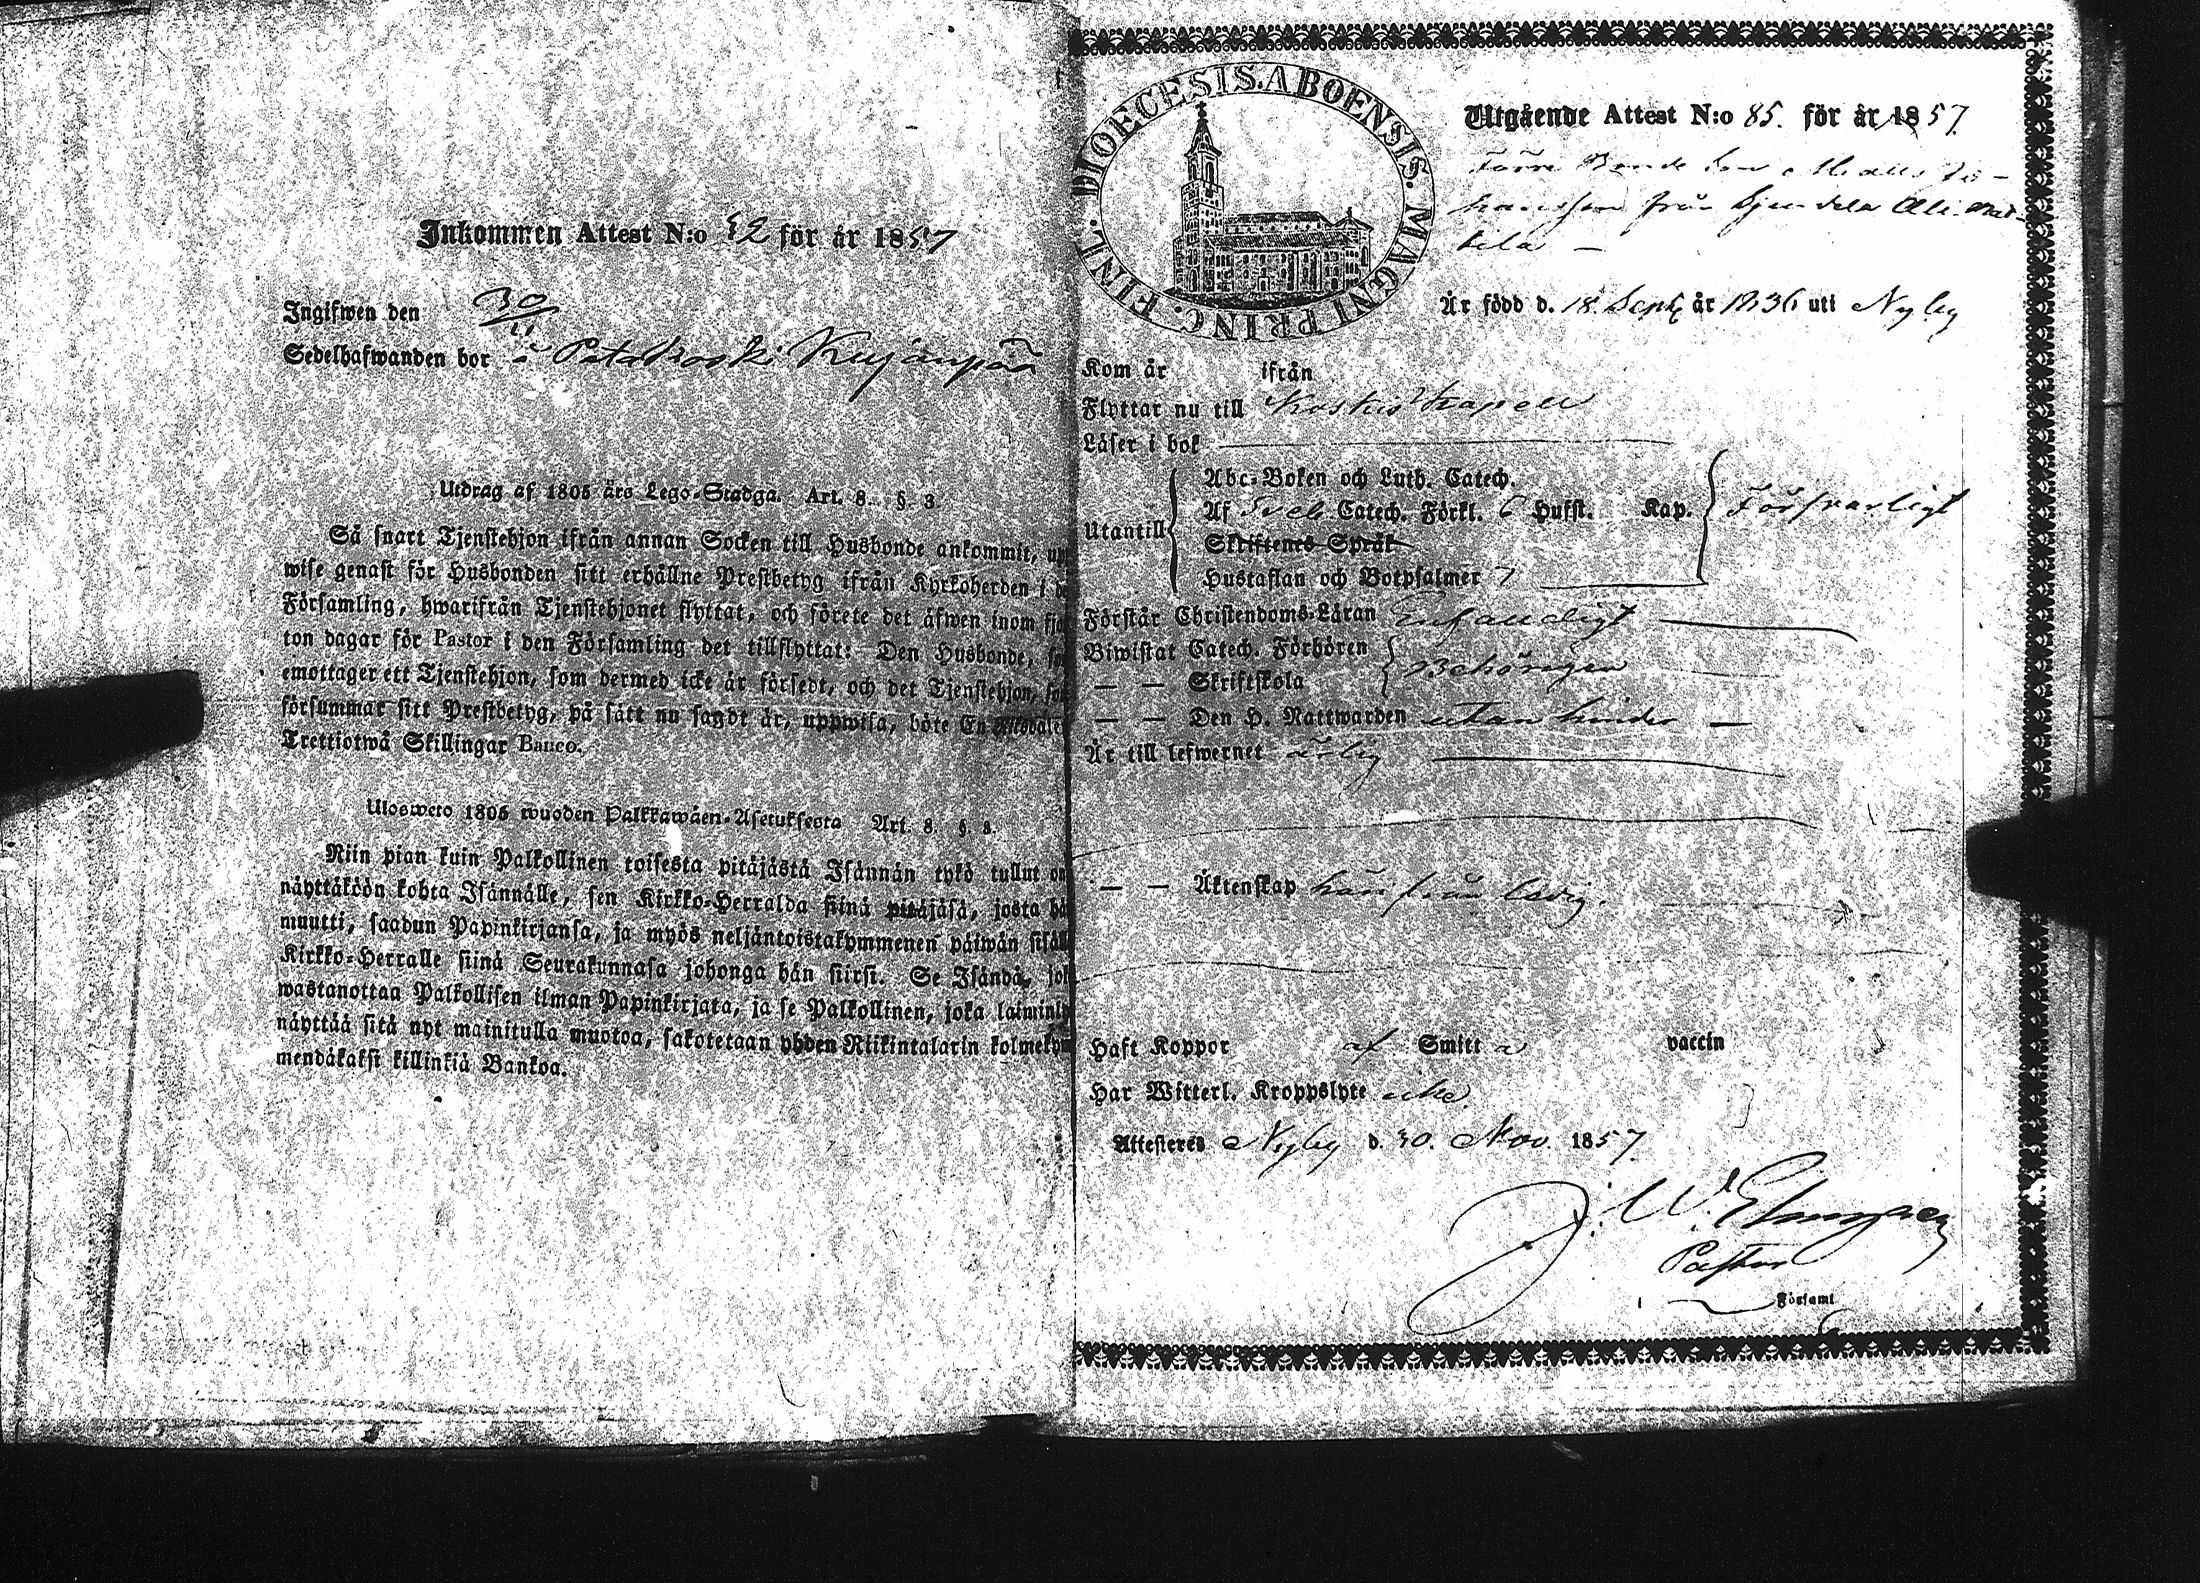 Inkommen Attest N:o 82 för år 1857
Ingifwen den 30/11
Sedelhafwanden bor i Patakoski Kujanpää
Utdrag af 1805 års Lego-Stadga. Art. 8. §. 3.
Så snart Tjenstehjon ifrån annan Socken till Husbonde ankommit, upp
wise genast för Husbonden sitt erhållne Prestbetyg ifrån Kyrkoherden i de
Församling, hwarifrån Tjenstehjonet flyttat, och förete det äfwen inom fjo
ton dagar för Pastor i den Församling det tillflyttat: Den Husbonde, so
emottager ett Tjenstehjon, som dermed icke är försedt, och det Tjenstehjon, som
försummar sitt Prestbetyg, på sätt nu sagdt är, uppwisa, böte En Riksdaler
Trettiotwå Skillingar Banco.
Ulosweto 1805 wuoden Palkkawäen-Asetuksesta Art. 8. §. 3.
Niin pian kuin Palkollinen toisesta pitäjästä Isännän tykö tullut on
näyttäköön kohta Isännälle, sen Kirkko-Herralda siinä pitäjäsä, josta hä
muutti, saadun Papinkirjansa, ja myös neljäntoistakymmenen päiwän sisäll
Kirkko-Herralle siinä Seurakunnasa johonga hän siirsi. Se Isändä, jok
wastanottaa Palkollisen ilman Papinkirjata, ja se Palkollinen, joka laiminly
näyttää sitä nyt mainitulla muotoa, sakotetaan yhden Riikintalarin kolmekym
mendäkaksi killinkiä Bankoa.
FINL. DIOECESIS. ABOENSIS. MAGNI PRINC.
Utgående Attest N:o 85. för år 1857.
Förre Bonde Son Matts Jo-
hansson från
tela –
Är född d. 18 Sept. år 1836 uti Nyby
Kom år ifrån
Flyttar nu till Koskis Kapell
Läser i bok
Abc-Boken och Luth. Catech.
Utantill Af Sveb. Catech. Förkl. 6 Hufst. Kap. Försvarligt
Skriftenes Språk
Hustaflan och Botpsalmer 7
Förstår Christendoms-Läran Enfaldigt
Biwistat Catech. Förhören
— — Skriftskola Behörigen
— — Den H. Nattwarden utan hinder —
Är till lefwernet ärlig
— — Äktenskap härifrån ledig.
Haft Koppor af Smitta vaccin
Har Witterl. Kroppslyte icke
Attesteres Nyby d. 30. Nov. 1857.
J. W. Elmgren
Pastor
i Församl